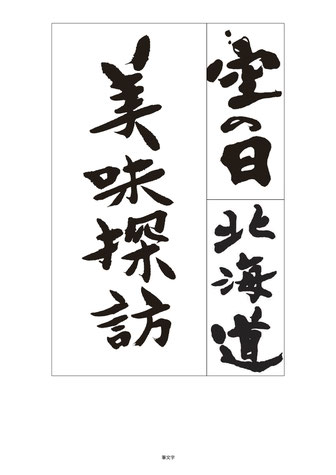 空の日
北海道
美味探訪
筆文字